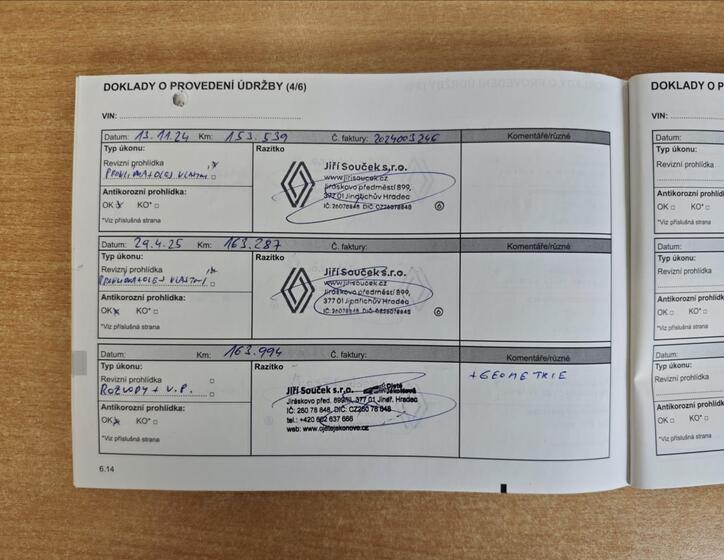 DOKLADY O PROVEDENÍ ÚDRŽBY (4/6)
VIN:
Datum: 13.11.24 Km: 153.539 Č. faktury: 2024003246 Komentáře/různé
Typ úkonu: Razítko
Revizní prohlídka
Antikorozní prohlídka:
OK KO*
*Viz příslušná strana
Jiří Souček s.r.o.
www.jirisoucek.cz
Jiráskovo předměstí 899,
377 01 Jindřichův Hradec
IČ: 26078848 DIČ: CZ26078848
6
Datum: 29.4.25 Km: 163.287 Č. faktury: Komentáře/různé
Typ úkonu: Razítko
Revizní prohlídka
Antikorozní prohlídka:
OK KO*
*Viz příslušná strana
Jiří Souček s.r.o.
www.jirisoucek.cz
Jiráskovo předměstí 899,
377 01 Jindřichův Hradec
IČ: 26078848 DIČ: CZ26078848
6
Datum: Km: 163.994 Č. faktury: Komentáře/různé
Typ úkonu: Razítko
Revizní prohlídka
ROZVODY + V.P.
Antikorozní prohlídka:
OK KO*
*Viz příslušná strana
Jiří Souček s.r.o.
Jiráskovo před. 899/II, 377 01 Jindř. Hradec
IČ: 260 78 848, DIČ: CZ260 78 848
tel.: +420 602 637 666
web: www.ojetejakonove.cz
+ GEOMETRIE
6.14
DOKLADY O P
VIN:
Datum:
Typ úkonu:
Revizní prohlídka
Antikorozní prohlídka:
OK KO*
*Viz příslušná strana
Datum:
Typ úkonu:
Revizní prohlídka
Antikorozní prohlídka:
OK KO*
*Viz příslušná strana
Datum:
Typ úkonu:
Revizní prohlídka
Antikorozní prohlídka:
OK KO*
*Viz příslušná strana